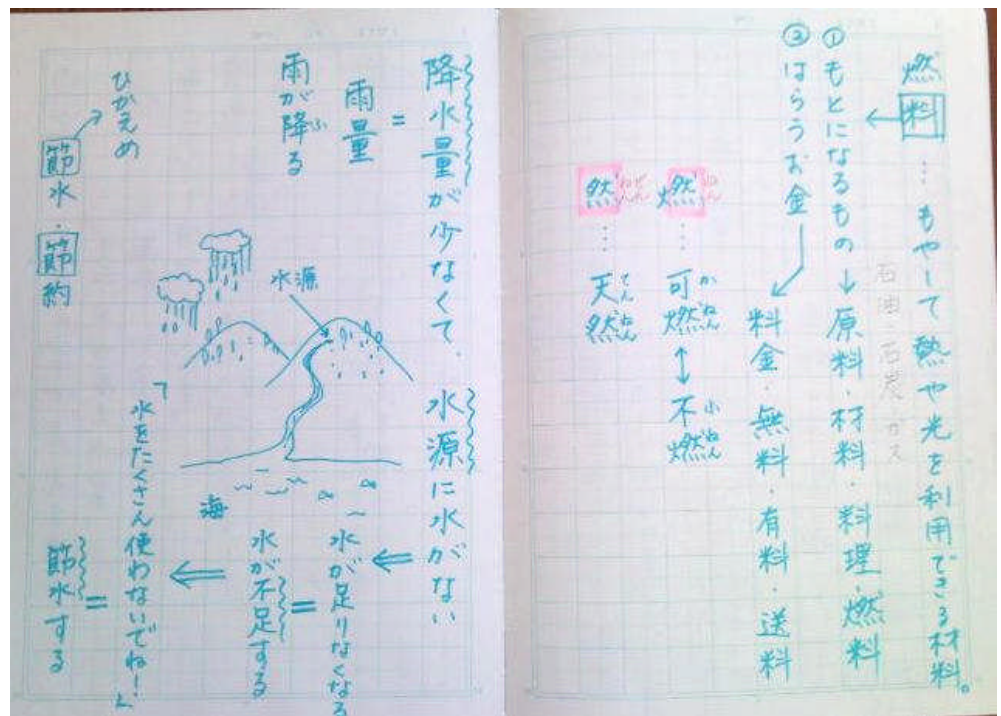 燃料…もやして熱や光を利用できる材料。
石油・石炭・ガス
①もとになるもの→原料・材料・料理・燃料
②はらうお金
料金・無料・有料・送料
燃ねん…可かねん燃↔不ふねん燃
然ぜんねん…天てんねん然
降水量が少なくて、水源に水がない
=
雨量
雨が降ふる
水が足りなくなる
=
水が不足する
「水をたくさん使わないでね!」
=
節水する
ひかえめ
節水・節約
水源
海